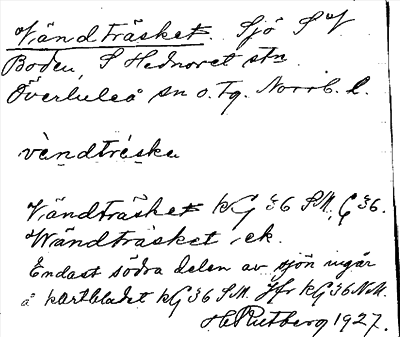 Vändträsket. Sjö S V
Boden, S Hednoret stn
Överluleå sn o. Tg. Norrb. l.
vàndtréska
Vändträsket kG 36 SM, G 36.
Wändträsket, ek.
Endast södra delen av sjön ingår
å kartbladet kG 36 SM. Jfr kG 36 NM.
H Rutberg 1927.